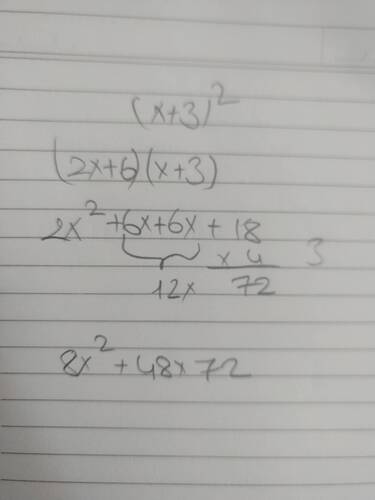 (x+3)²
(2x+6)(x+3)
2x²+6x+6x+18
x 4 3
12x 72
8x²+48x72